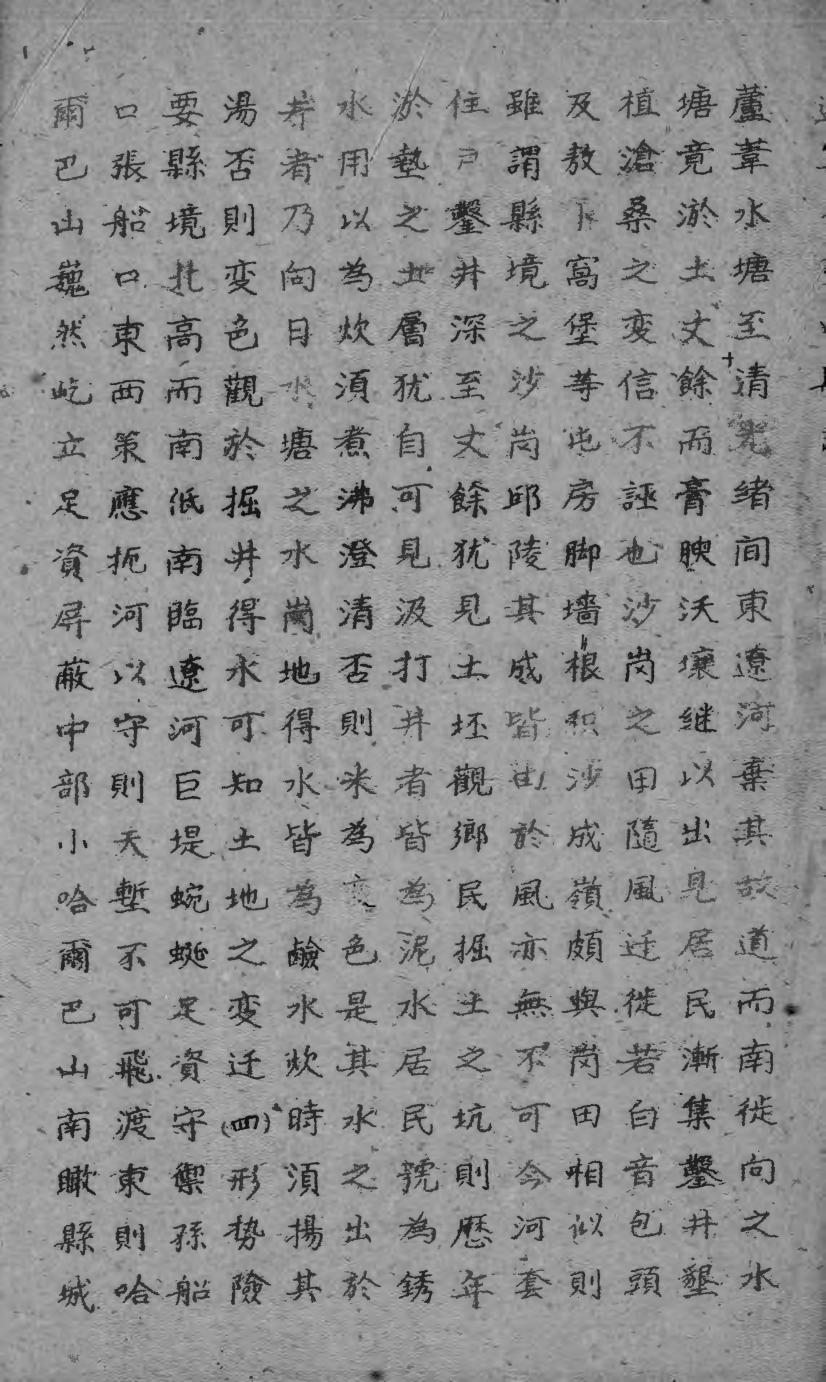 蘆葦水塘至清光緒间東遼河棄其故道而南徙向之水
塘竟淤土丈餘而膏腴沃壤継以出見居民漸集鑿井墾
植滄桑之变信不誣也沙崗之田隨風迁徙若白音包頭
及敖卜窩堡等屯房脚墻根积沙成嶺頗與崗田相似則
雖謂縣境之沙崗邱陵其成皆由於風亦無不可今河套
住戸鑿井深至丈餘犹見土坯觀鄉民掘土之坑則歷年
淤墊之土層犹自可見汲打井者皆為泥水居民號為銹
水用以為炊湏煮沸澄清否則米為变色是其水之出於
井者乃向日水塘之水崗地得水皆為鹼水炊時湏揚其
湯否則变色觀於掘井得水可知土地之变迁(四)形势險
要縣境北高而南低南臨遼河巨堤蜿蜒足資守禦孫船
口張船口東西策應扼河以守則天塹不可飛渡東則哈
爾巴山巍然屹立足資屏蔽中部小哈爾巴山南瞰縣城